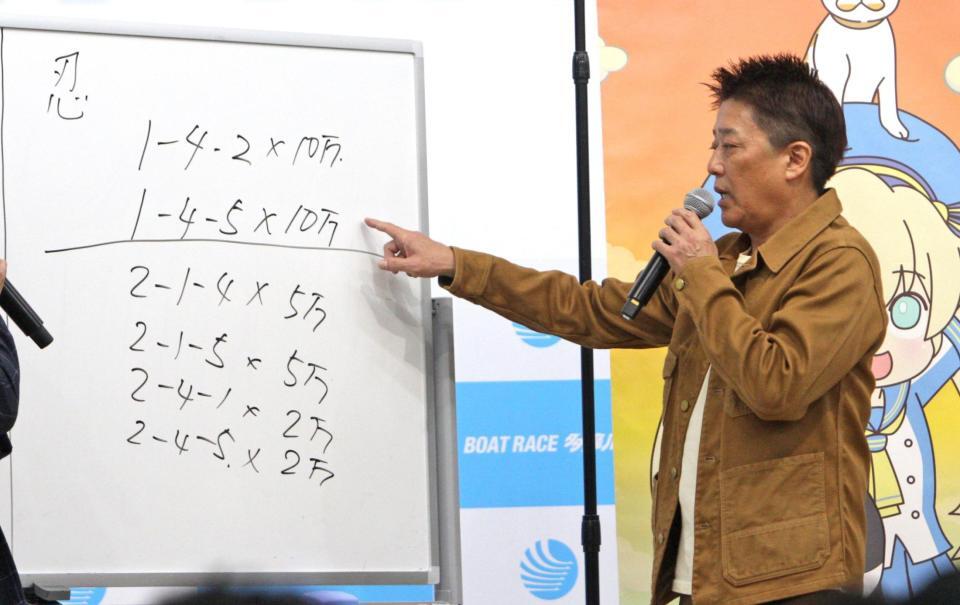 忍
1-4-2×10万.
1-4-5×10万
2-1-4×5万
2-1-5×5万
2-4-1×2万
2-4-5.×2万
BOAT RACE 多摩川